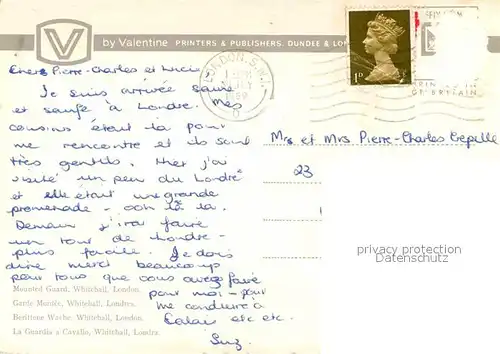 V by Valentine PRINTERS & PUBLISHERS. DUNDEE & LON
LONDON. S.W.1.
1D
OF BRITAIN
Chers Pierre-Charles et Lucie
Je suis arrivée sauve
et saufe à Londre. Mes
cousins était la pour
me rencontre et ils sont
très gentils. Hier j'ai
visité un peu du Londre
et elle était une grande
promenade - ooh là la.
Demain j'irai faire
un tour de Londre -
plus facile. Je dois
dire merci beaucoup
pour tous que vous avez faire
pour moi - pour
me conduire à
Calais etc etc.
Suz.
Mrs et Mrs Pierre-Charles Crepelle
23
privacy protection
Datenschutz
Mounted Guard, Whitehall, London.
Garde Montée, Whitehall, Londres.
Berittene Wache, Whitehall, London.
La Guardia a Cavallo, Whitehall, Londra.